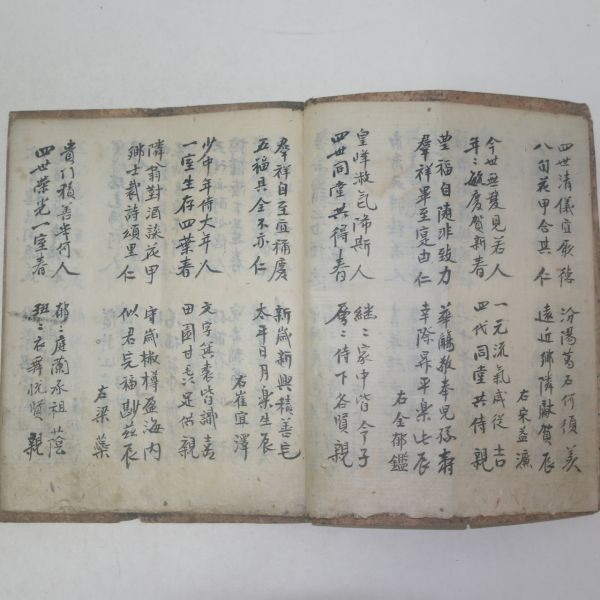 四世清儀宜 汾陽萬石何須羨
八旬花甲合其仁 遠近鄉隣獻賀辰
右宋益濂
今世無幾見若人 一元流氣咸從吉
年〻敏處賀新春 四代同堂共侍親
豊福自随非致力 華觴敬奉児孫壽
羣祥畢至寔由仁 幸際昇平樂此辰
右金郁鑑
皇 淑氣降斯人 継〻家中皆令子
四世同堂共得春 侍下各賢親
羣祥自至宜稱慶 新歳新興積善宅
五福具全不亦仁 太平日月樂生辰
右崔宜澤
少中年侍大年人 文字箕裘皆識
一室生存四葉春 田園甘毳足供親
隣翁對酒談花甲 守歳椒樽盈海内
鄉士裁詩頌里仁 似君完福尠玆辰
右梁藥
貴門積善幾何人 猗〻庭蘭承祖蔭
四世榮光一室春 班〻衣舞悅賢親